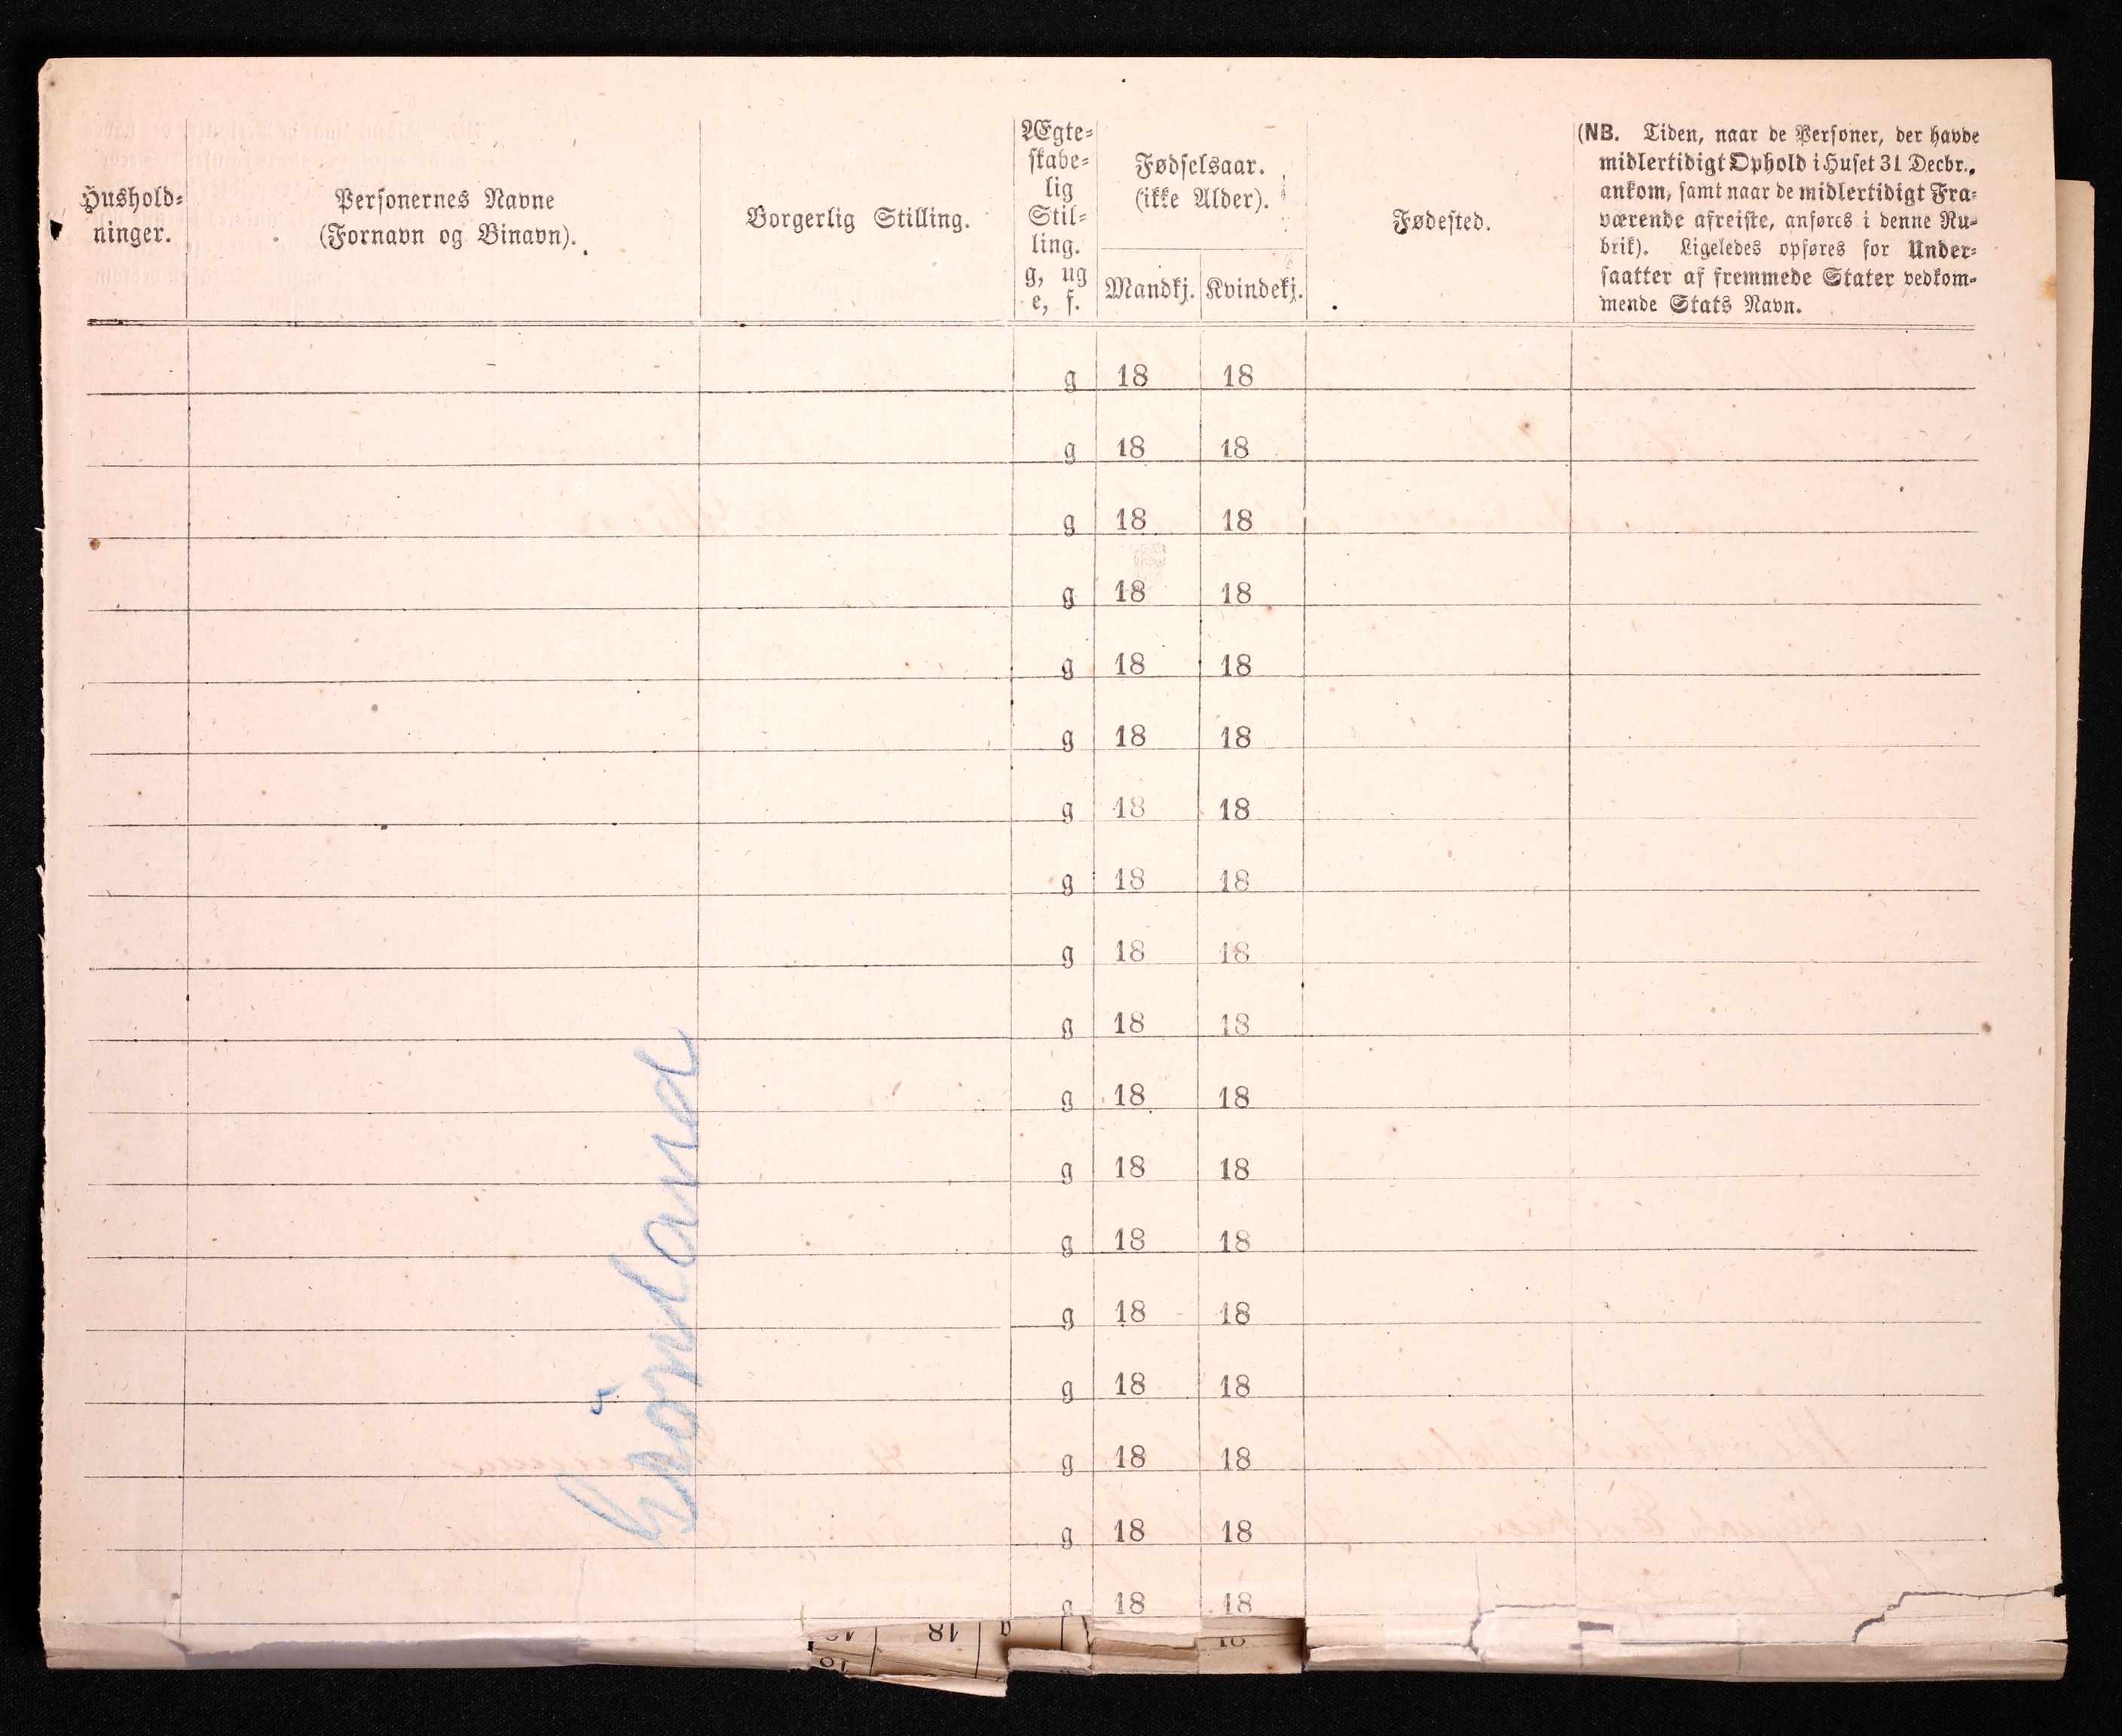 Hushold-
ninger.
Personernes Navne
(Fornavn og Binavn).
Borgerlig Stilling.
Ægte-
skabe-
lig
Stil-
ling.
g, ug
e, f.
Fødselsaar.
(ikke Alder).
Mandkj. Kvindekj.
Fødested.
(NB. Tiden, naar de Personer, der havde
midlertidigt Ophold i Huset 31 Decbr.,
ankom, samt naar de midlertidigt Fra-
værende afreiste, anføres i denne Ru-
brik). Ligeledes opføres for Under-
saatter af fremmede Stater vedkom-
mende Stats Navn.
g 18 18
g 18 18
g 18 18
g 18 18
g 18 18
g 18 18
g 18 18
g 18 18
g 18 18
g 18 18
g 18 18
g 18 18
g 18 18
g 18 18
g 18 18
g 18 18
g 18 18
g 18 18
Grönland
18